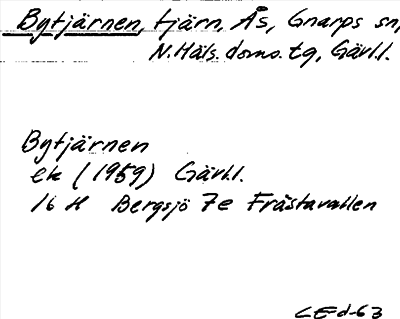 Bytjärnen, tjärn, Ås, Gnarps sn,
N.Häls. doms. tg, Gävl.l.
Bytjärnen
ek (1959) Gävl.l.
16 H Bergsjö 7e Frästavallen
CEd-63